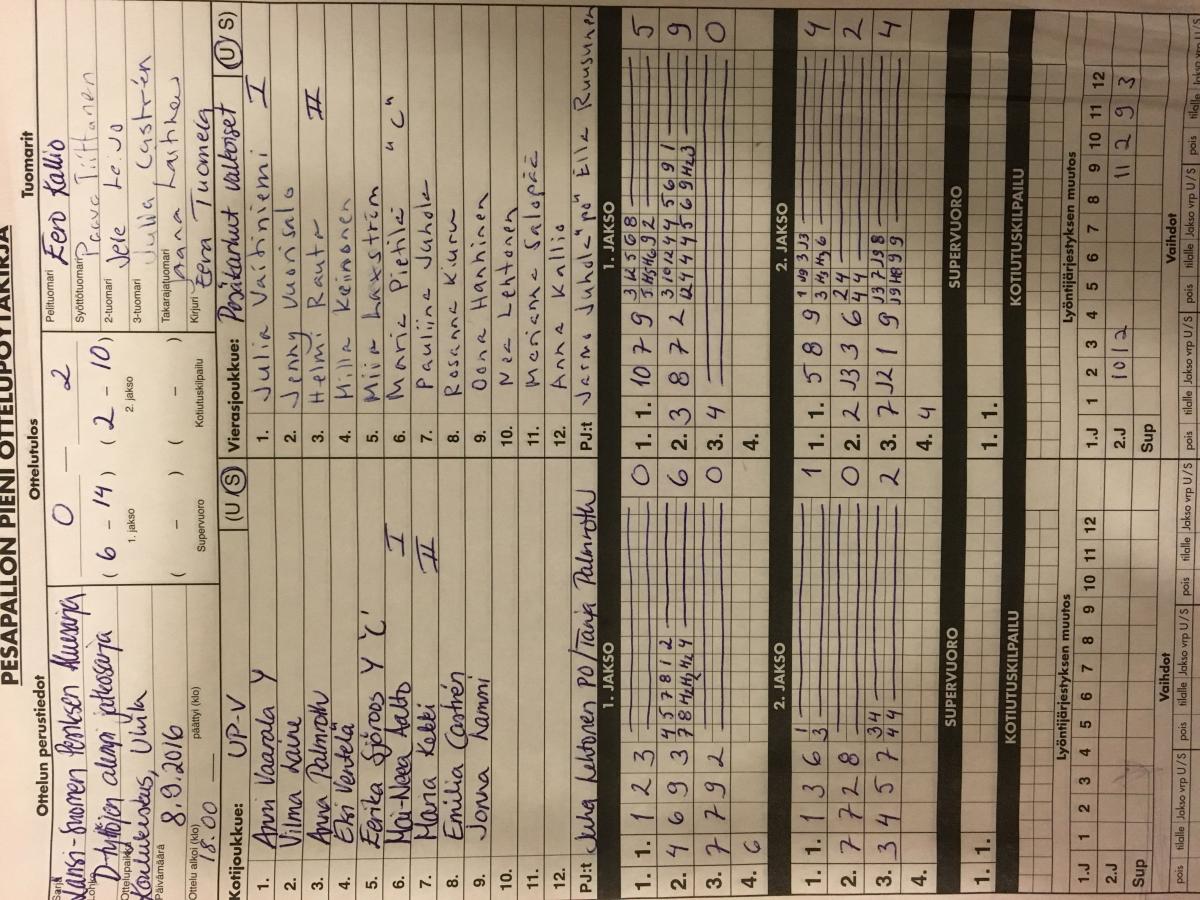 PESÄPALLON PIENI OTTELUPÖYTÄKIRJA
Ottelun perustiedot
Ottelutulos
Tuomarit
Länsi-Suomen Pesiksen Aluesarja
D-tyttöjen alempi jatkosarja
Ottelupaikka
Koulukeskus, Ulvila
Päivämäärä
8.9.2016
Ottelu alkoi (klo)
18.00
päättyi (klo)
0 — 2
( 6 - 14 ) ( 2 - 10 )
1. jakso
2. jakso
( - ) ( - )
Supervuoro
Kotiutuskilpailu
Pelituomari Eero Kallio
Syöttötuomari Paavo Tiittanen
2-tuomari Jere Leivo
3-tuomari Julia Castrén
Takarajatuomari Jaana Laitinen
Kirjuri Eera Tuomela
Kotijoukkue: UP-V (U/S)
1. Anni Vaarala Y
2. Vilma Laine
3. Anna Palmroth
4. Eki Ventelä
5. Eerika Sjöroos Y "C"
6. Mai-Neea Aalto I
7. Maria Kokki II
8. Emilia Castrén
9. Jonna Lammi
10.
11.
12.
PJ:t Juha Lehtonen PO/Tanja Palmroth
Vierasjoukkue: Pesäkarhut Valkoiset (U/S)
1. Julia Vaitiniemi I
2. Jenny Vuorisalo
3. Helmi Rauta II
4. Milla Keinonen
5. Miia Laxström
6. Maria Pietilä "C"
7. Pauliina Juhola
8. Rosanna Kiuru
9. Oona Hanhinen
10. Nea Lehtonen
11. Mariana Salopää
12. Anna Kallio
PJ:t Jarmo Juhola "pö" Ella Ruusunen
1. JAKSO
1. 1. 1 2 3 0
4 2. 6 9 3 6
7 3. 7 9 2 0
6 4.
1. JAKSO
1. 1. 10 7 9 5
2. 3 8 7 2 9
3. 4 0
4.
2. JAKSO
1. 1. 1 3 6 1
7 2. 7 2 8 0
3 3. 4 5 7 2
4.
2. JAKSO
1. 1. 5 8 9 4
2. 2 J3 3 6 2
3. 7 J2 1 9 4
4. 4
SUPERVUORO
1. 1.
SUPERVUORO
1. 1.
KOTIUTUSKILPAILU
KOTIUTUSKILPAILU
Lyöntijärjestyksen muutos
1.J 1 2 3 4 5 6 7 8 9 10 11 12
2.J
Sup
Lyöntijärjestyksen muutos
1.J 1 2 3 4 5 6 7 8 9 10 11 12
2.J 10 12 11 2 9 3
Sup
Vaihdot
pois tilalle Jakso vrp U/S pois tilalle Jakso vrp U/S pois tilalle Jakso vrp U/S
Vaihdot
pois tilalle Jakso vrp U/S pois tilalle Jakso vrp U/S pois tilalle Jakso vrp U/S